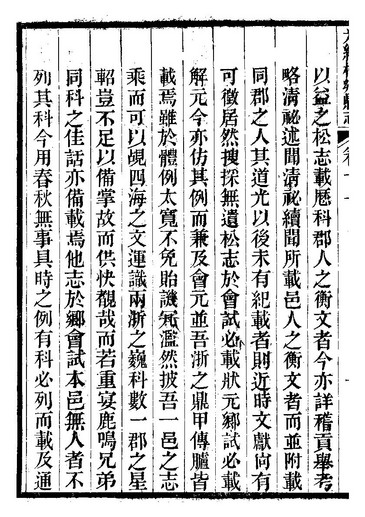 以益之松志載歷科郡人之衡文者今亦詳稽貢舉考
略清祕述聞清祕續聞所載邑人之衡文者而並附載
同郡之人其道光以後未有紀載者則近時文獻尚有
可徵居然搜採無遺松志於會試必載狀元鄉試必載
解元今亦仿其例而兼及會元並吾浙之鼎甲傳臚皆
載焉雖於體例太寬不免貽譏氾濫然披吾一邑之志
乘而可以覘四海之文運識兩浙之巍科數一郡之星
軺豈不足以備掌故而供快覩哉而若重宴鹿鳴兄弟
同科之佳話亦備載焉他志於鄉會試本邑無人者不
列其科今用春秋無事具時之例有科必列而載及通